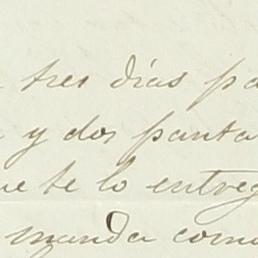 tres días pa
y dos panta
ue te lo entreg
manda como